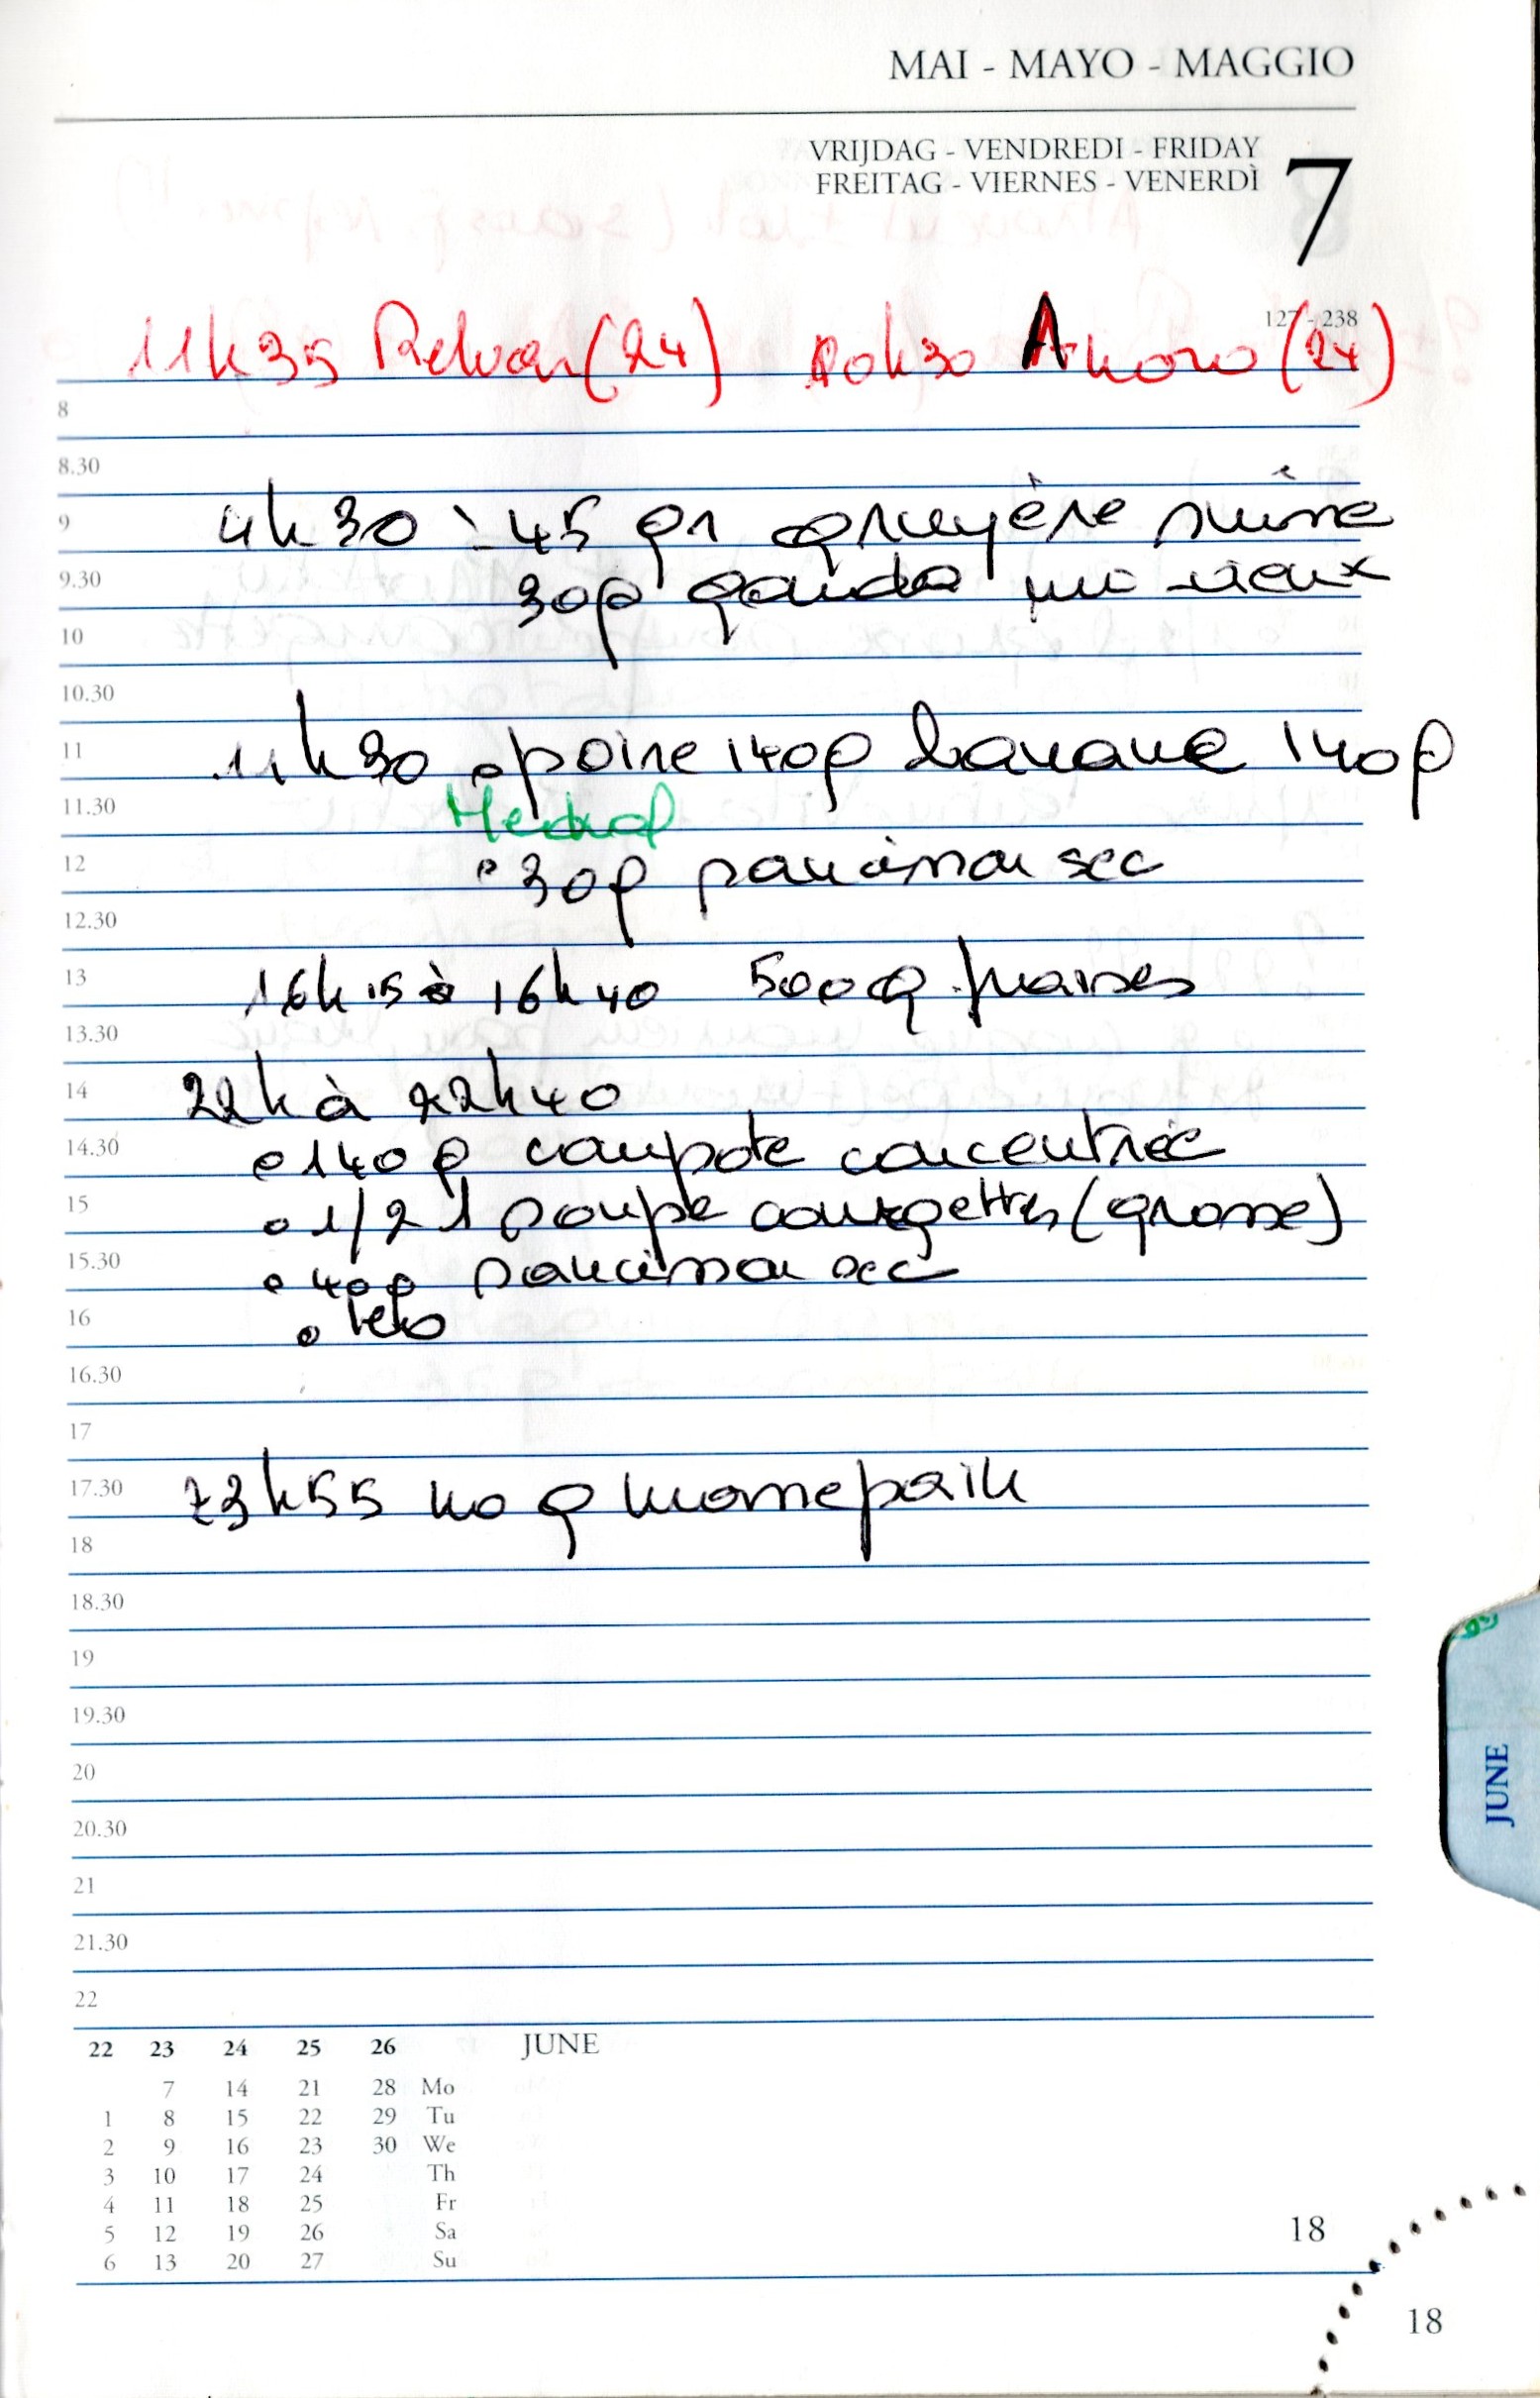 MAI - MAYO - MAGGIO
VRIJDAG - VENDREDI - FRIDAY
FREITAG - VIERNES - VENERDÌ
7
127 - 238
11h35 (24) 20h30 (24)
8
8.30
9 4h30 : 45 gr gruyère suisse
9.30 30g gouda mi-vieux
10
10.30
11 11h30 poire 140g banane 140g
11.30
12 30g saucisson sec
12.30
13 16h15 à 16h40 500g fraises
13.30
14 22h à 22h40
14.30 140g compote concentrée
15 1/2 l soupe courgettes (grosse)
15.30 40g saucisson sec
16
16.30
17
17.30 23h55 g
18
18.30
19
19.30
20
20.30
21
21.30
22
22 23 24 25 26 JUNE
7 14 21 28 Mo
1 8 15 22 29 Tu
2 9 16 23 30 We
3 10 17 24 Th
4 11 18 25 Fr
5 12 19 26 Sa
6 13 20 27 Su
18
18
JUNE